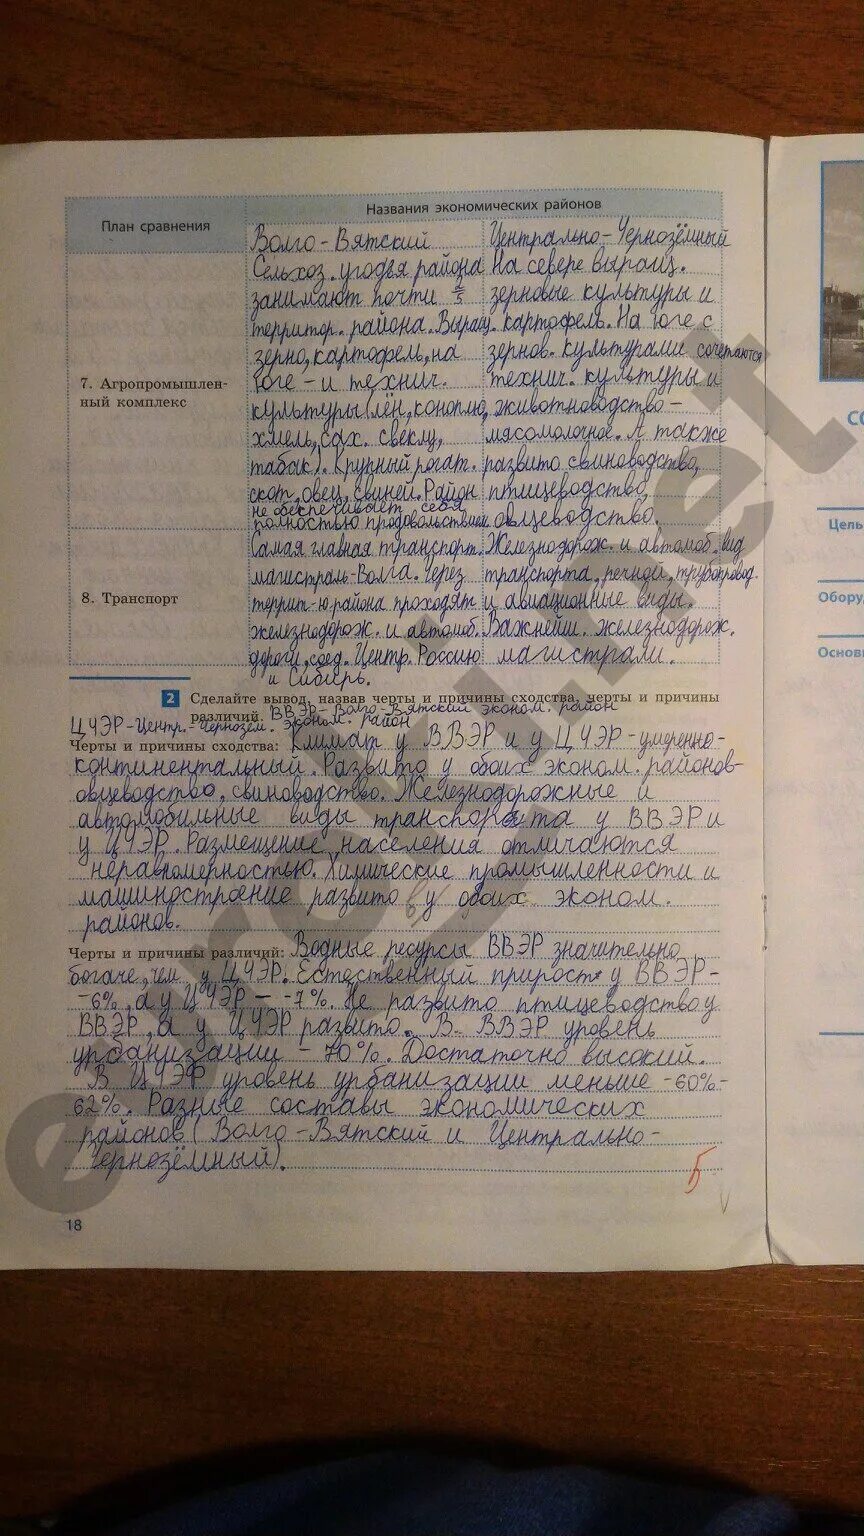 План сравнения
Названия экономических районов
Волго-Вятский
Центрально-Чернозёмный
7. Агропромышлен-
ный комплекс
Сельхоз. угодья района
занимают почти 2/5
территор. района. Выращ.
зерно, картофель, на
юге – и технич.
культуры (лён, коноплю,
хмель, сах. свеклу,
табак). Крупный рогат.
скот, овец, свиней. Район
не обеспечивает себя
полностью продовольствием
На севере выращ.
зерновые культуры и
картофель. На юге с
зернов. культурами сочетаются
технич. культуры и
животноводство –
мясомолочное. А также
развито свиноводство,
птицеводство,
овцеводство.
8. Транспорт
Самая главная транспорт.
магистраль-Волга. Через
террит-ю района проходят
железнодорож. и автомоб.
дороги, соед. Центр. Россию
и Сибирь.
Железнодорож. и автомоб. вид
транспорта, речной, трубопровод.
и авиационные виды.
Важнейш. железнодорож.
магистрали.
2 Сделайте вывод, назвав черты и причины сходства, черты и причины
различий. ВВЭР-Волго-Вятский эконом. район
ЦЧЭР-Центр.-Чернозём. эконом. район
Черты и причины сходства: Климат у ВВЭР и у ЦЧЭР-умеренно-
континентальный. Развито у обоих эконом. районов-
овцеводство, свиноводство. Железнодорожные и
автомобильные виды транспорта у ВВЭР и
у ЦЧЭР. Размещение населения отличаются
неравномерностью. Химические промышленности и
машиностроение развито в у обоих эконом.
районов.
Черты и причины различий: Водные ресурсы ВВЭР значительно
богаче, чем у ЦЧЭР. Естественный прирост у ВВЭР-
-6%, а у ЦЧЭР – -7%. Не развито птицеводство у
ВВЭР, а у ЦЧЭР развито. В ВВЭР уровень
урбанизации – 70%. Достаточно высокий.
В ЦЧЭР уровень урбанизации меньше -60%-
62%. Разные составы экономических
районов (Волго-Вятский и Центрально-
Чернозёмный).
5
18
СО
Цель
Обору
Основ